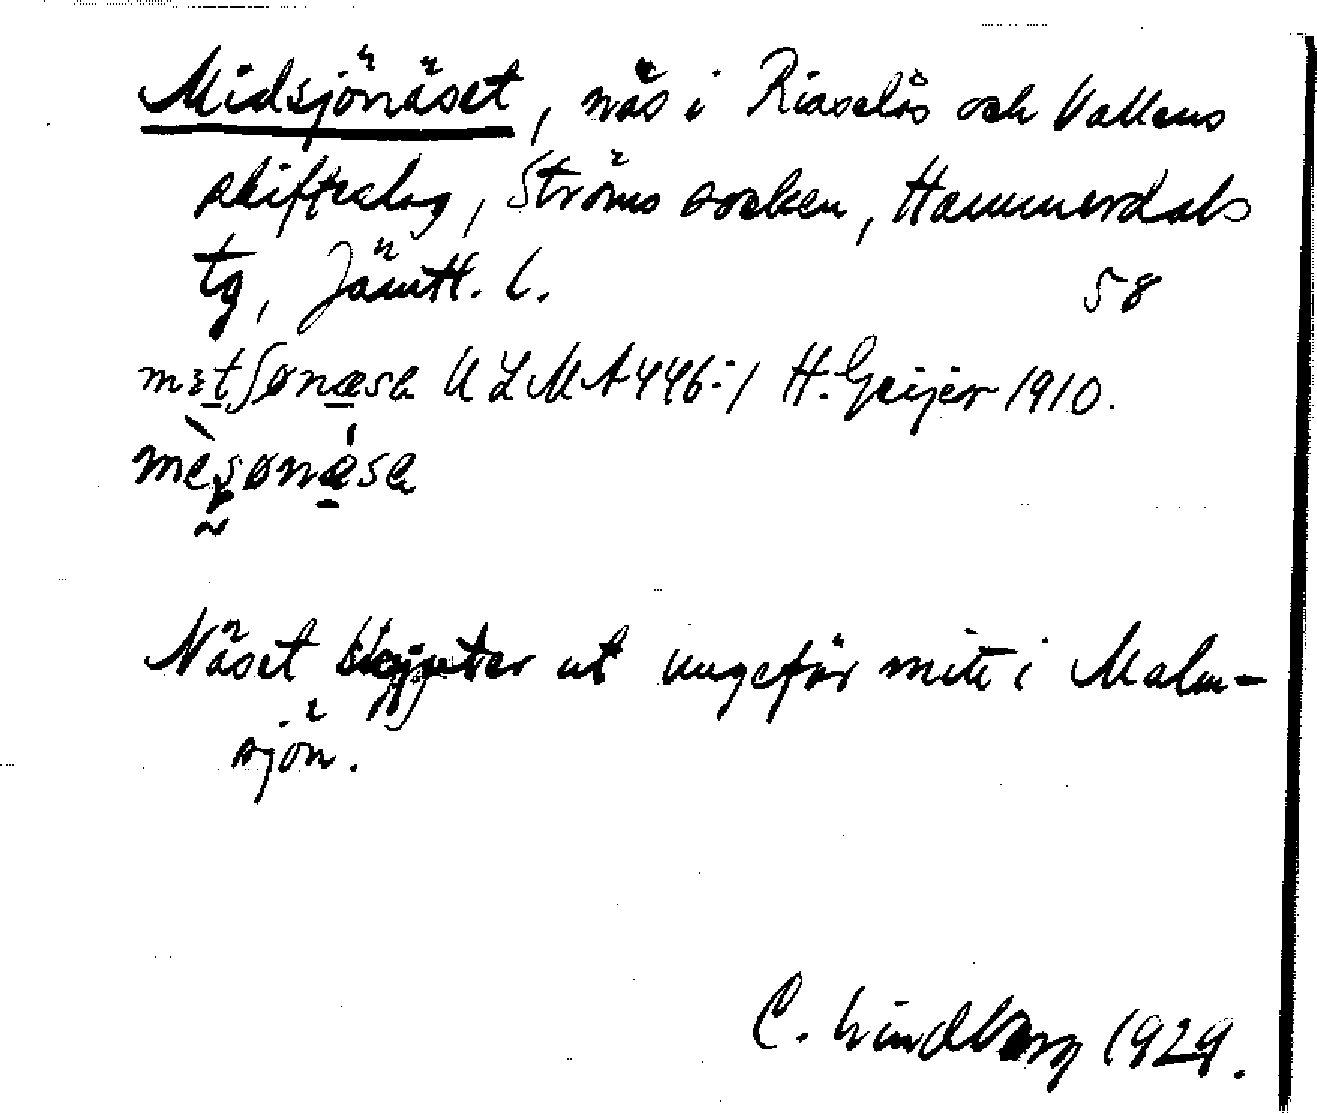 Midsjönäset, näs i Risselås och Vallens
skifteslag, Ströms socken, Hammerdals
tg, Jämtl. l.
58
ULMA 446:1 H. Geijer 1910.
Näset skjuter ut ungefär mitt i Malm-
sjön.
C. Lindberg 1929.